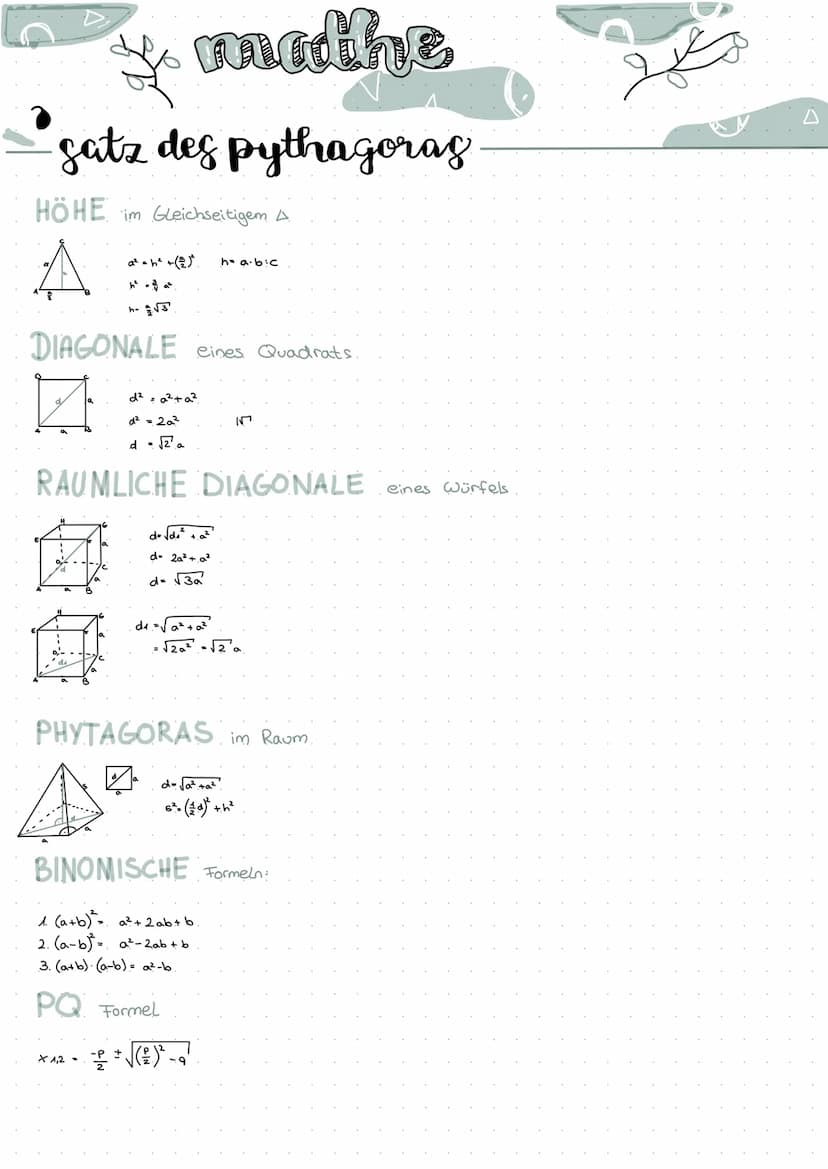 mathe
satz des pythagoras
HÖHE im Gleichseitigem Δ
C
a
h
A a/2 B
a² = h² + (a/2)² h = a·b:c
h² = 3/4 a²
h = a/2 √3
DIAGONALE eines Quadrats
D C
d a
A a B
d² = a² + a²
d² = 2a² |√
d = √2 a
RÄUMLICHE DIAGONALE eines Würfels
H G
E F
a
D C
d a
A a B
d = √d₁² + a²
d = 2a² + a²
d = √3a
H G
E
a
D C
d₁ a
A a B
d₁ = √a² + a²
= √2a² = √2 a
PHYTAGORAS im Raum
s
a
a
d a
a
d = √a² + a²
s² = (1/2 d)² + h²
BINOMISCHE Formeln:
1. (a+b)² = a² + 2ab + b
2. (a-b)² = a² - 2ab + b
3. (a+b)·(a-b) = a² - b
PQ Formel
x 1,2 = -p/2 ± √(p/2)² - q